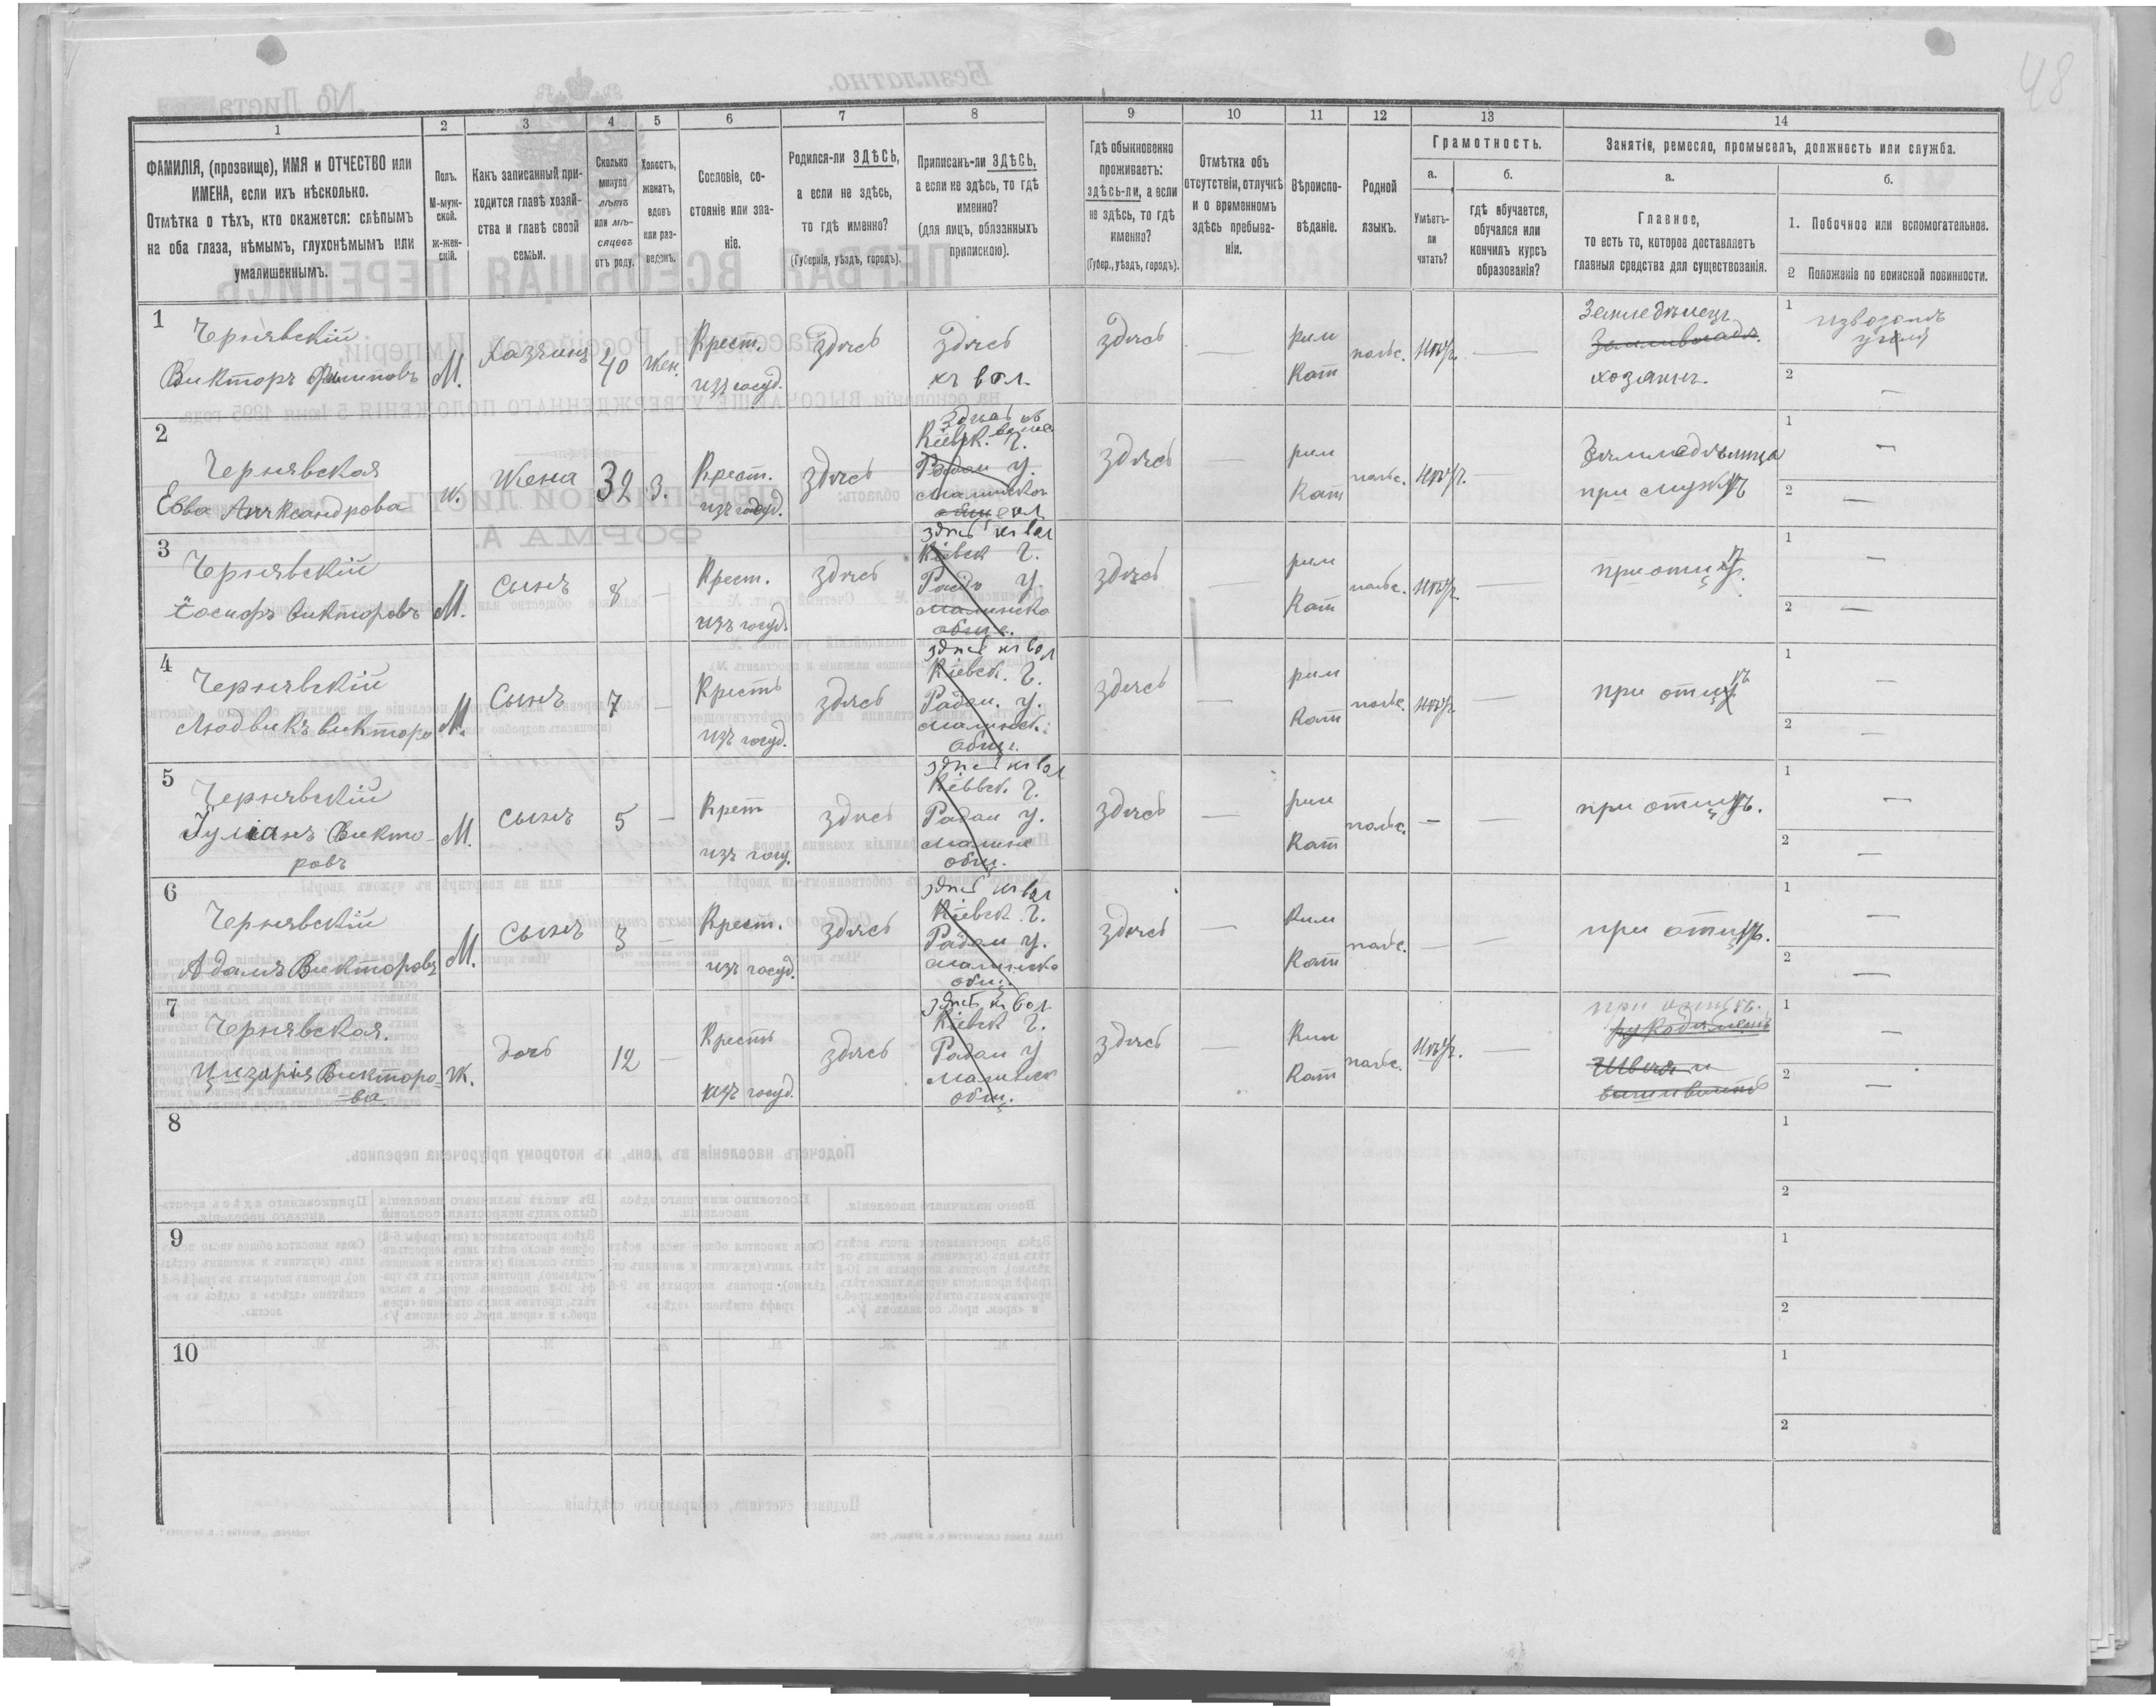 48
1 2 3 4 5 6 7 8 9 10 11 12 13 14
ФАМИЛІЯ, (прозвище), ИМЯ и ОТЧЕСТВО или
ИМЕНА, если ихъ нѣсколько.
Отмѣтка о тѣхъ, кто окажется: слѣпымъ
на оба глаза, нѣмымъ, глухонѣмымъ или
умалишеннымъ.
Полъ.
М-муж-
ской.
ж-жен-
скій.
Какъ записанный при-
ходится главѣ хозяй-
ства и главѣ своей
семьи.
Сколько
минуло
лѣтъ
или мѣ-
сяцевъ
отъ роду.
Холостъ,
женатъ,
вдовъ
или раз-
веденъ.
Сословіе, со-
стояніе или зва-
ніе.
Родился-ли ЗДѢСЬ,
а если не здѣсь,
то гдѣ именно?
(Губернія, уѣздъ, городъ).
Приписанъ-ли ЗДѢСЬ,
а если не здѣсь, то гдѣ
именно?
(для лицъ, обязанныхъ
припискою).
Гдѣ обыкновенно
проживаетъ:
здѣсь-ли, а если
не здѣсь, то гдѣ
именно?
(Губер., уѣздъ, городъ).
Отмѣтка объ
отсутствіи, отлучкѣ
и о временномъ
здѣсь пребыва-
ніи.
Вѣроиспо-
вѣданіе.
Родной
языкъ.
Грамотность.
а.
Умѣетъ-
ли
читать?
б.
гдѣ обучается,
обучался или
кончилъ курсъ
образованія?
Занятіе, ремесло, промыселъ, должность или служба.
а.
Главное,
то есть то, которое доставляетъ
главныя средства для существованія.
б.
1. Побочное или вспомогательное.
2 Положеніе по воинской повинности.
1
Чернявскій
Викторъ Филиповъ
М.
Хазяинъ
40
жен.
Крест.
изъ госуд.
здѣсь
здѣсь
къ вол.
здѣсь
—
рим
Кат
польс.
нѣтъ.
—
Земледѣлецъ
хозяинъ.
1
2 —
2
Чернявская
Евва Александрова
ж.
Жена
32
З.
Крест.
изъ госуд.
здѣсь
Кіевск. Г.
Радом У.
здѣсь
—
рим
Кат
польс.
нѣтъ.
Земледѣлица
при мужѣ
1 —
2 —
3
Чернявскій
Іосифъ Викторовъ
М.
Сынъ
8
—
Крест.
изъ госуд.
здѣсь
здѣсь къ вол
Кіевск Г.
У.
общ.
здѣсь
—
рим
Кат
польс.
нѣтъ.
—
при отцѣ.
1 —
2 —
4
Чернявскій
Людвикъ Викторо
М.
Сынъ
7
—
Кресть
изъ госуд.
здѣсь
здѣсь къ вол
Кіевск. Г.
Радом. У.
Малинск.
Обще.
здѣсь
—
рим
Кат
польс.
нѣтъ.
—
при отцѣ
1 —
2 —
5
Чернявскій
Іуліанъ Викто-
ровъ
М.
Сынъ
5
—
Крет
изъ госу.
здѣсь
здѣсь къ вол
Г.
Радом У.
общ.
здѣсь
—
рим
Кат
польс.
—
—
при отцѣ.
1 —
2 —
6
Чернявскій
Адамъ Викторовъ
М.
Сынъ
3
—
Крест.
изъ госуд.
здѣсь
здѣсь къ вол
Кіевск. Г.
Радом У.
Малинско
общ.
здѣсь
—
Рим
Кат
польс.
—
—
при отцѣ.
1 —
2 —
7
Чернявская.
Цизарія Викторо-
ва
Ж.
дочь
12
—
Кресть
изъ госуд.
здѣсь
здѣсь къ вол.
Кіевск Г.
Радом У
Малинск
общ.
здѣсь
—
Рим
Кат
польс.
нѣтъ.
—
при отцѣ.
Швея и
1 —
2 —
8
1
2
9
1
2
10
1
2